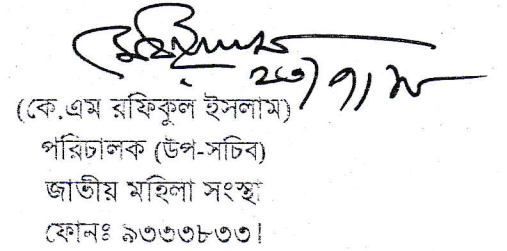 (কে.এম রফিকুল ইসলাম)
পরিচালক (উপ-সচিব)
জাতীয় মহিলা সংস্থা
ফোনঃ ৯৩৩৩৮৩৩।